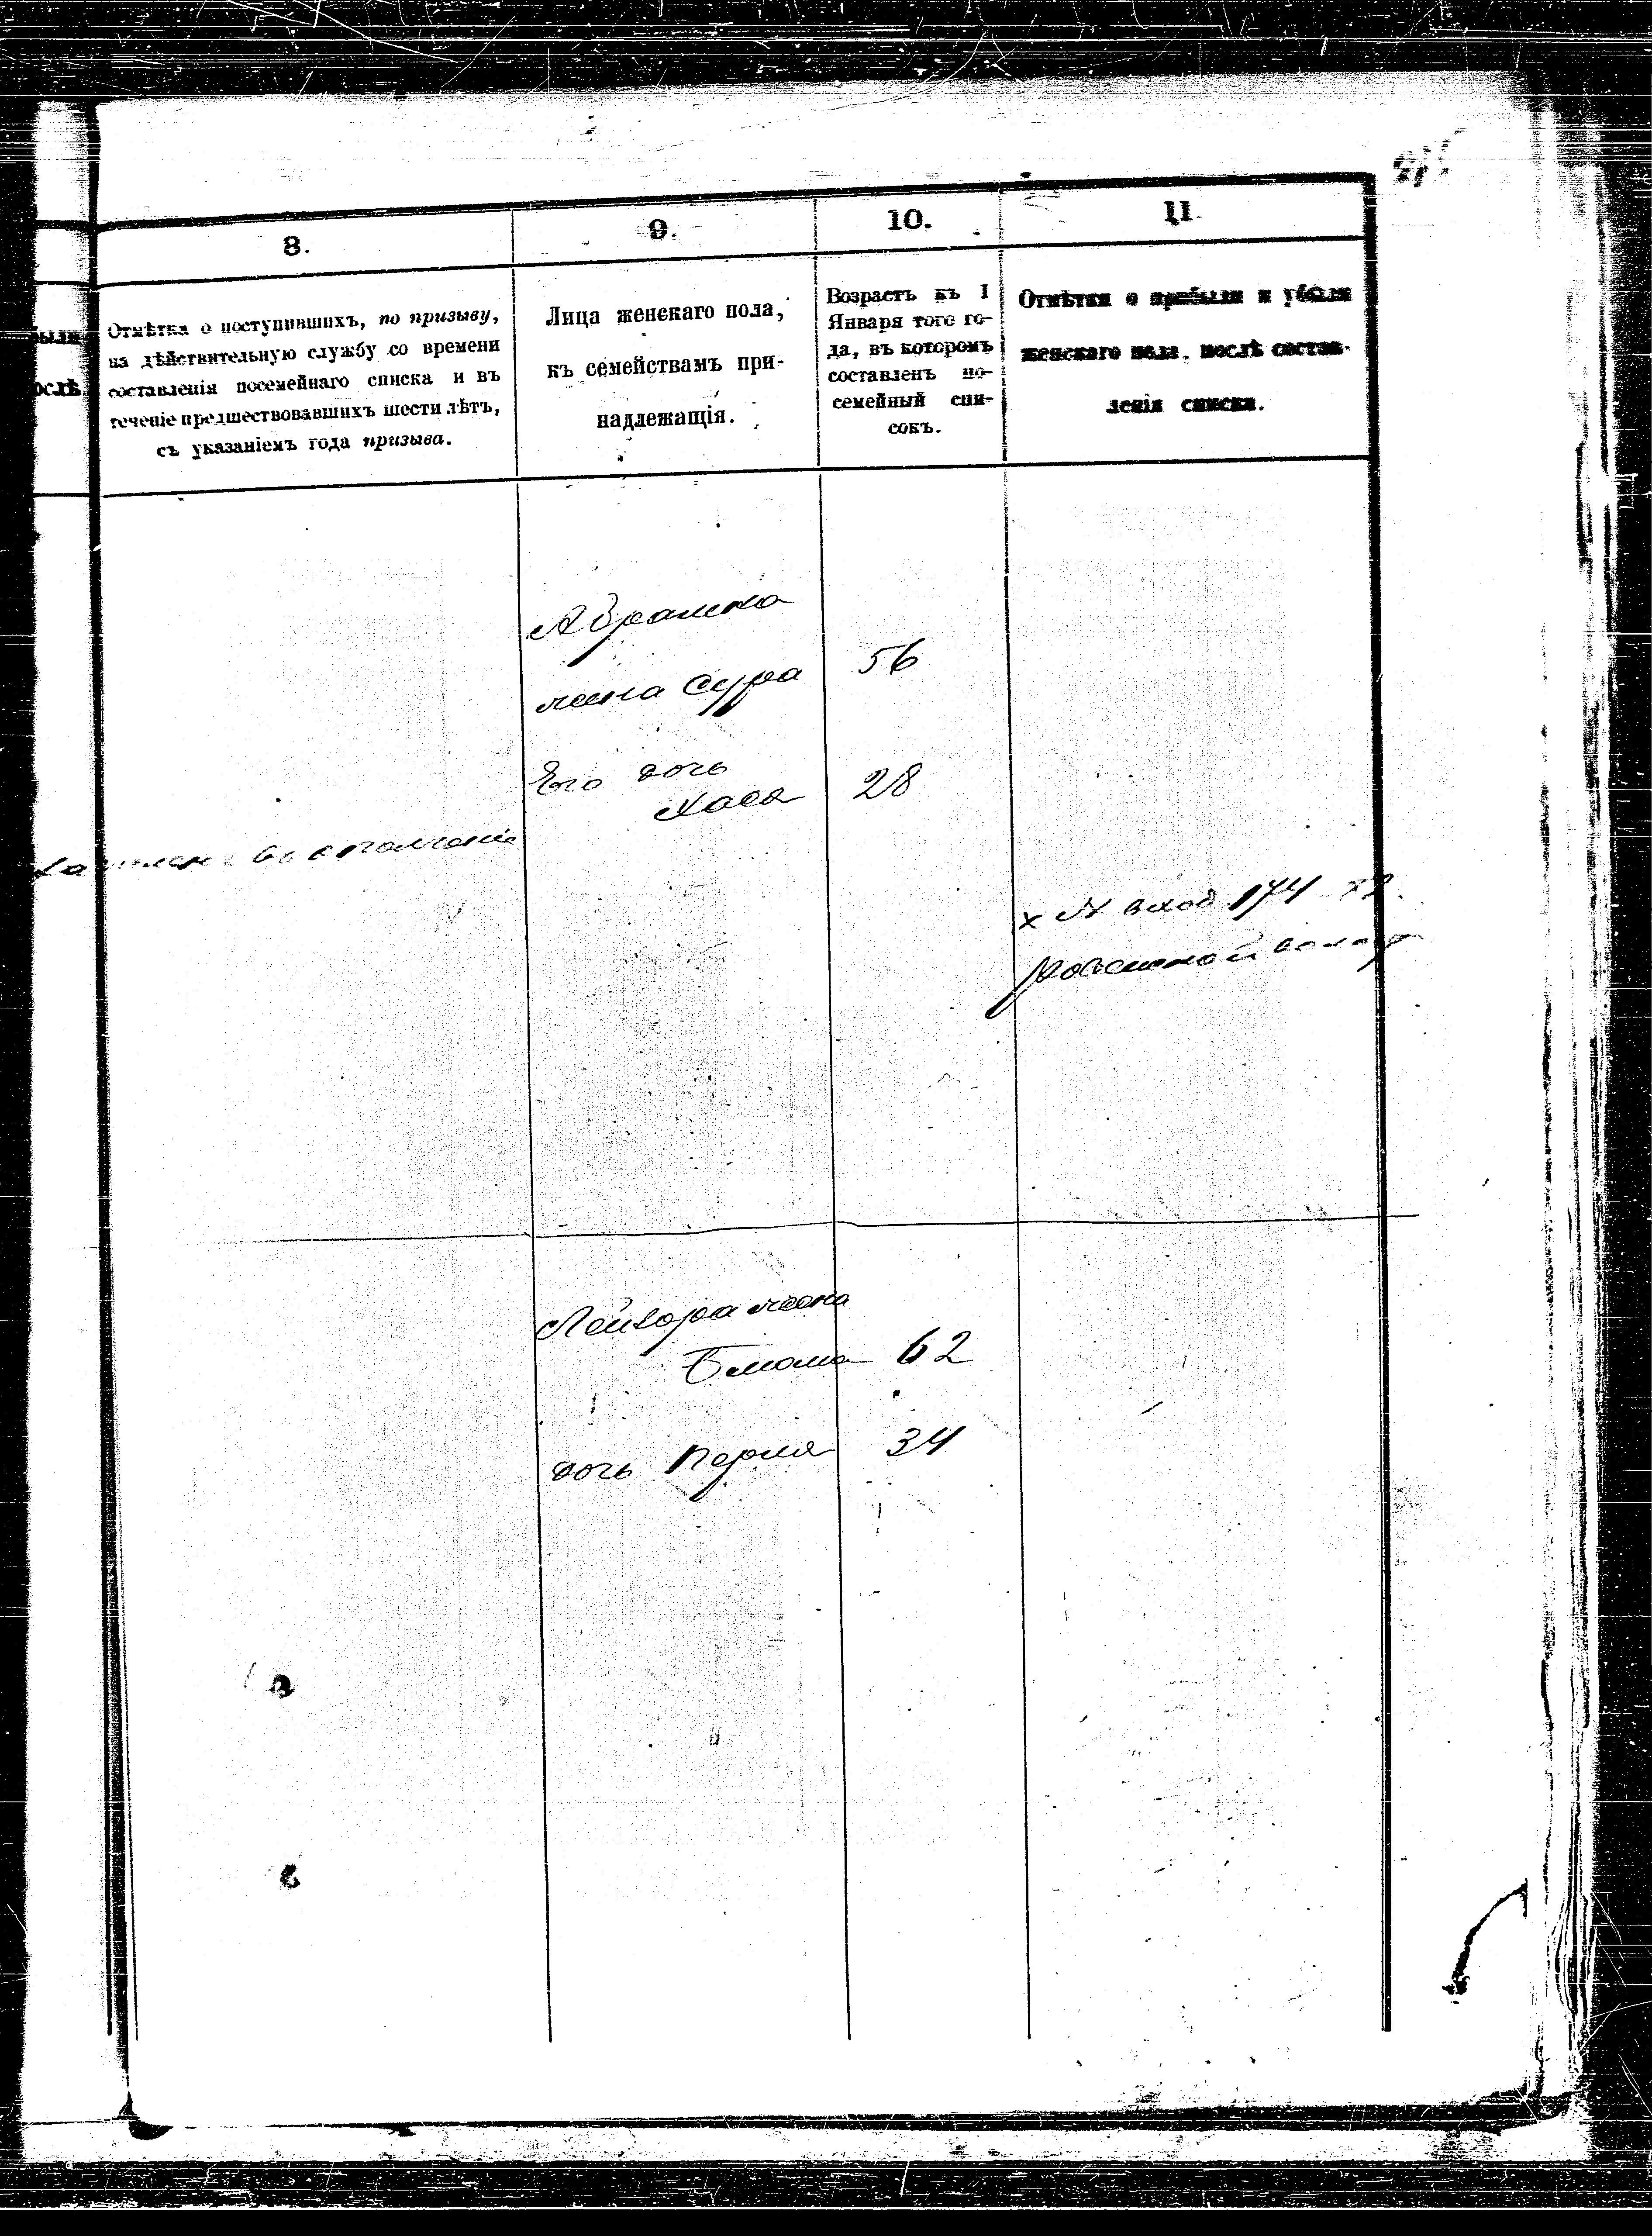 8.
9.
10.
11.
были
ослѣ
Отмѣтка о поступившихъ, по призыву,
на дѣйствительную службу со времени
составленія посемейнаго списка и въ
теченіе предшествовавшихъ шести лѣтъ,
съ указаніемъ года призыва.
Лица женскаго пола,
къ семействамъ при-
надлежащія.
Возрастъ къ 1
Января того го-
да, въ которомъ
составленъ по-
семейный спи-
сокъ.
Отмѣтки о прибыли и убыли
женскаго пола, послѣ состав-
ленія списка.
Абрамка
жена Сура 56
Его дочь
Хася 28
въ ополченіе
х № вход 174
Лейзора жена
Блюма 62
дочь Перля 34